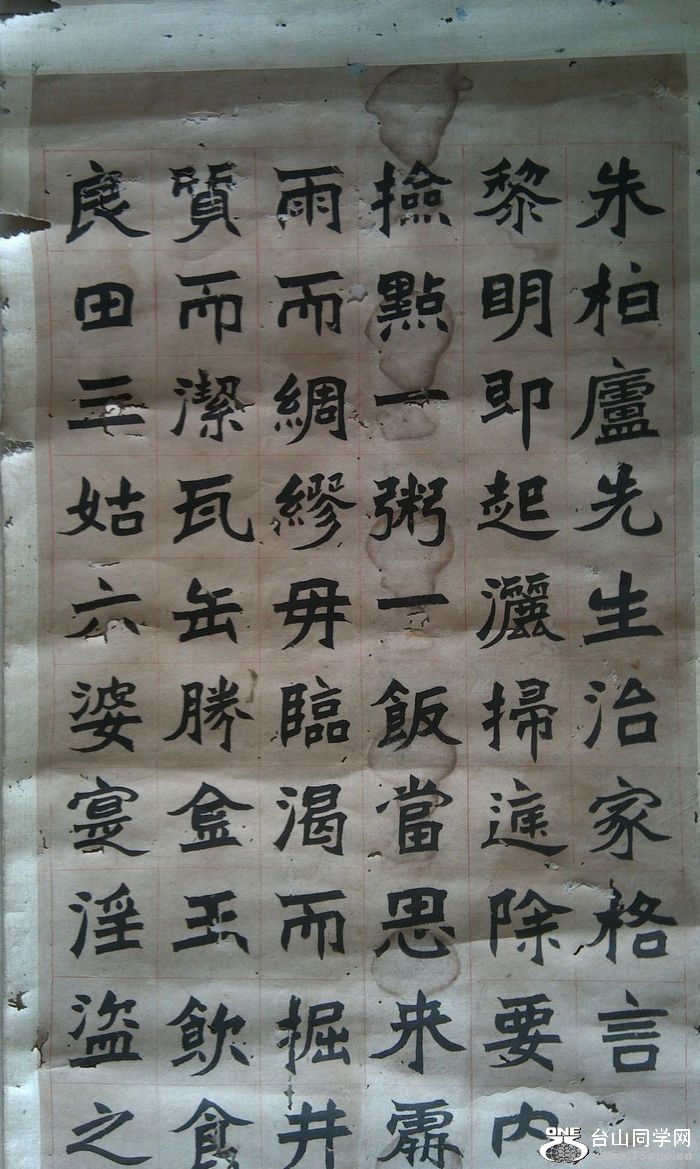 朱柏廬先生治家格言
黎明即起灑掃庭除要内
撿點一粥一飯當思来處
雨而綢繆毋臨渴而掘井
質而潔瓦缶勝金玉飲食
良田三姑六婆寔淫盜之
ONE 台山同学网